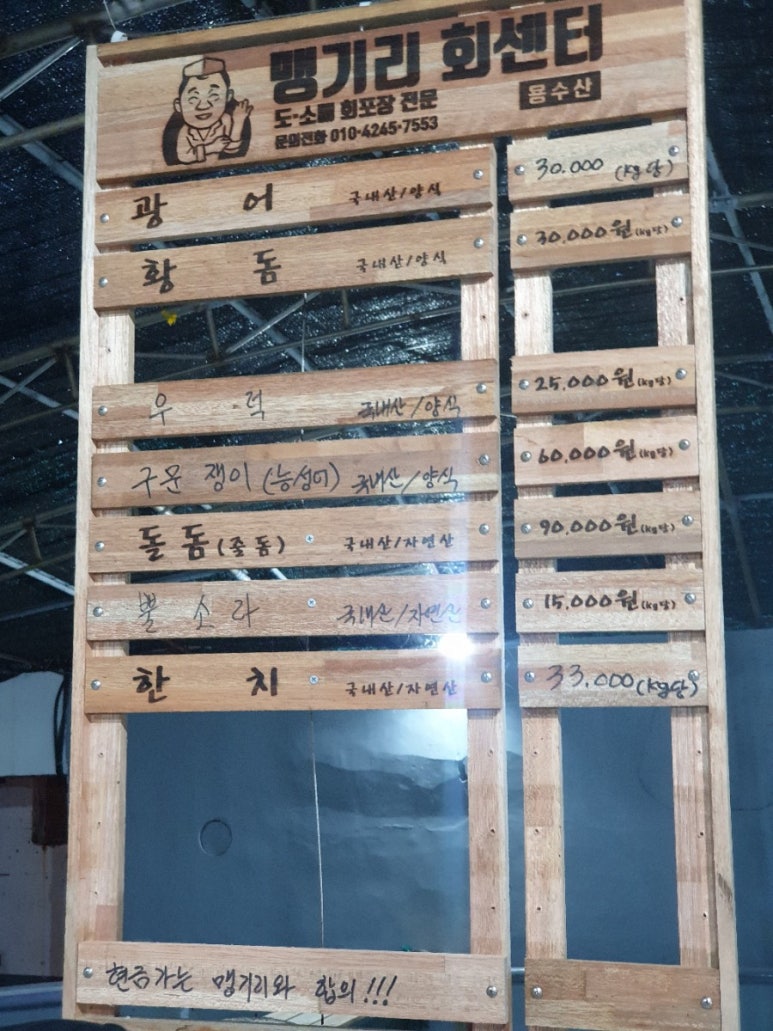 맹기리 회센터
용수산
도·소매 회포장 전문
문의전화 010-4245-7553
광어 국내산/양식 30.000 (kg당)
황돔 국내산/양식 30.000원(kg당)
우럭 국내산/양식 25.000원(kg당)
구문쟁이(능성어) 국내산/양식 60.000원(kg당)
돌돔(줄돔) 국내산/자연산 90.000원(kg당)
뿔소라 국내산/자연산 15.000원(kg당)
한치 국내산/자연산 33.000(kg당)
현금가는 맹기리와 합의!!!